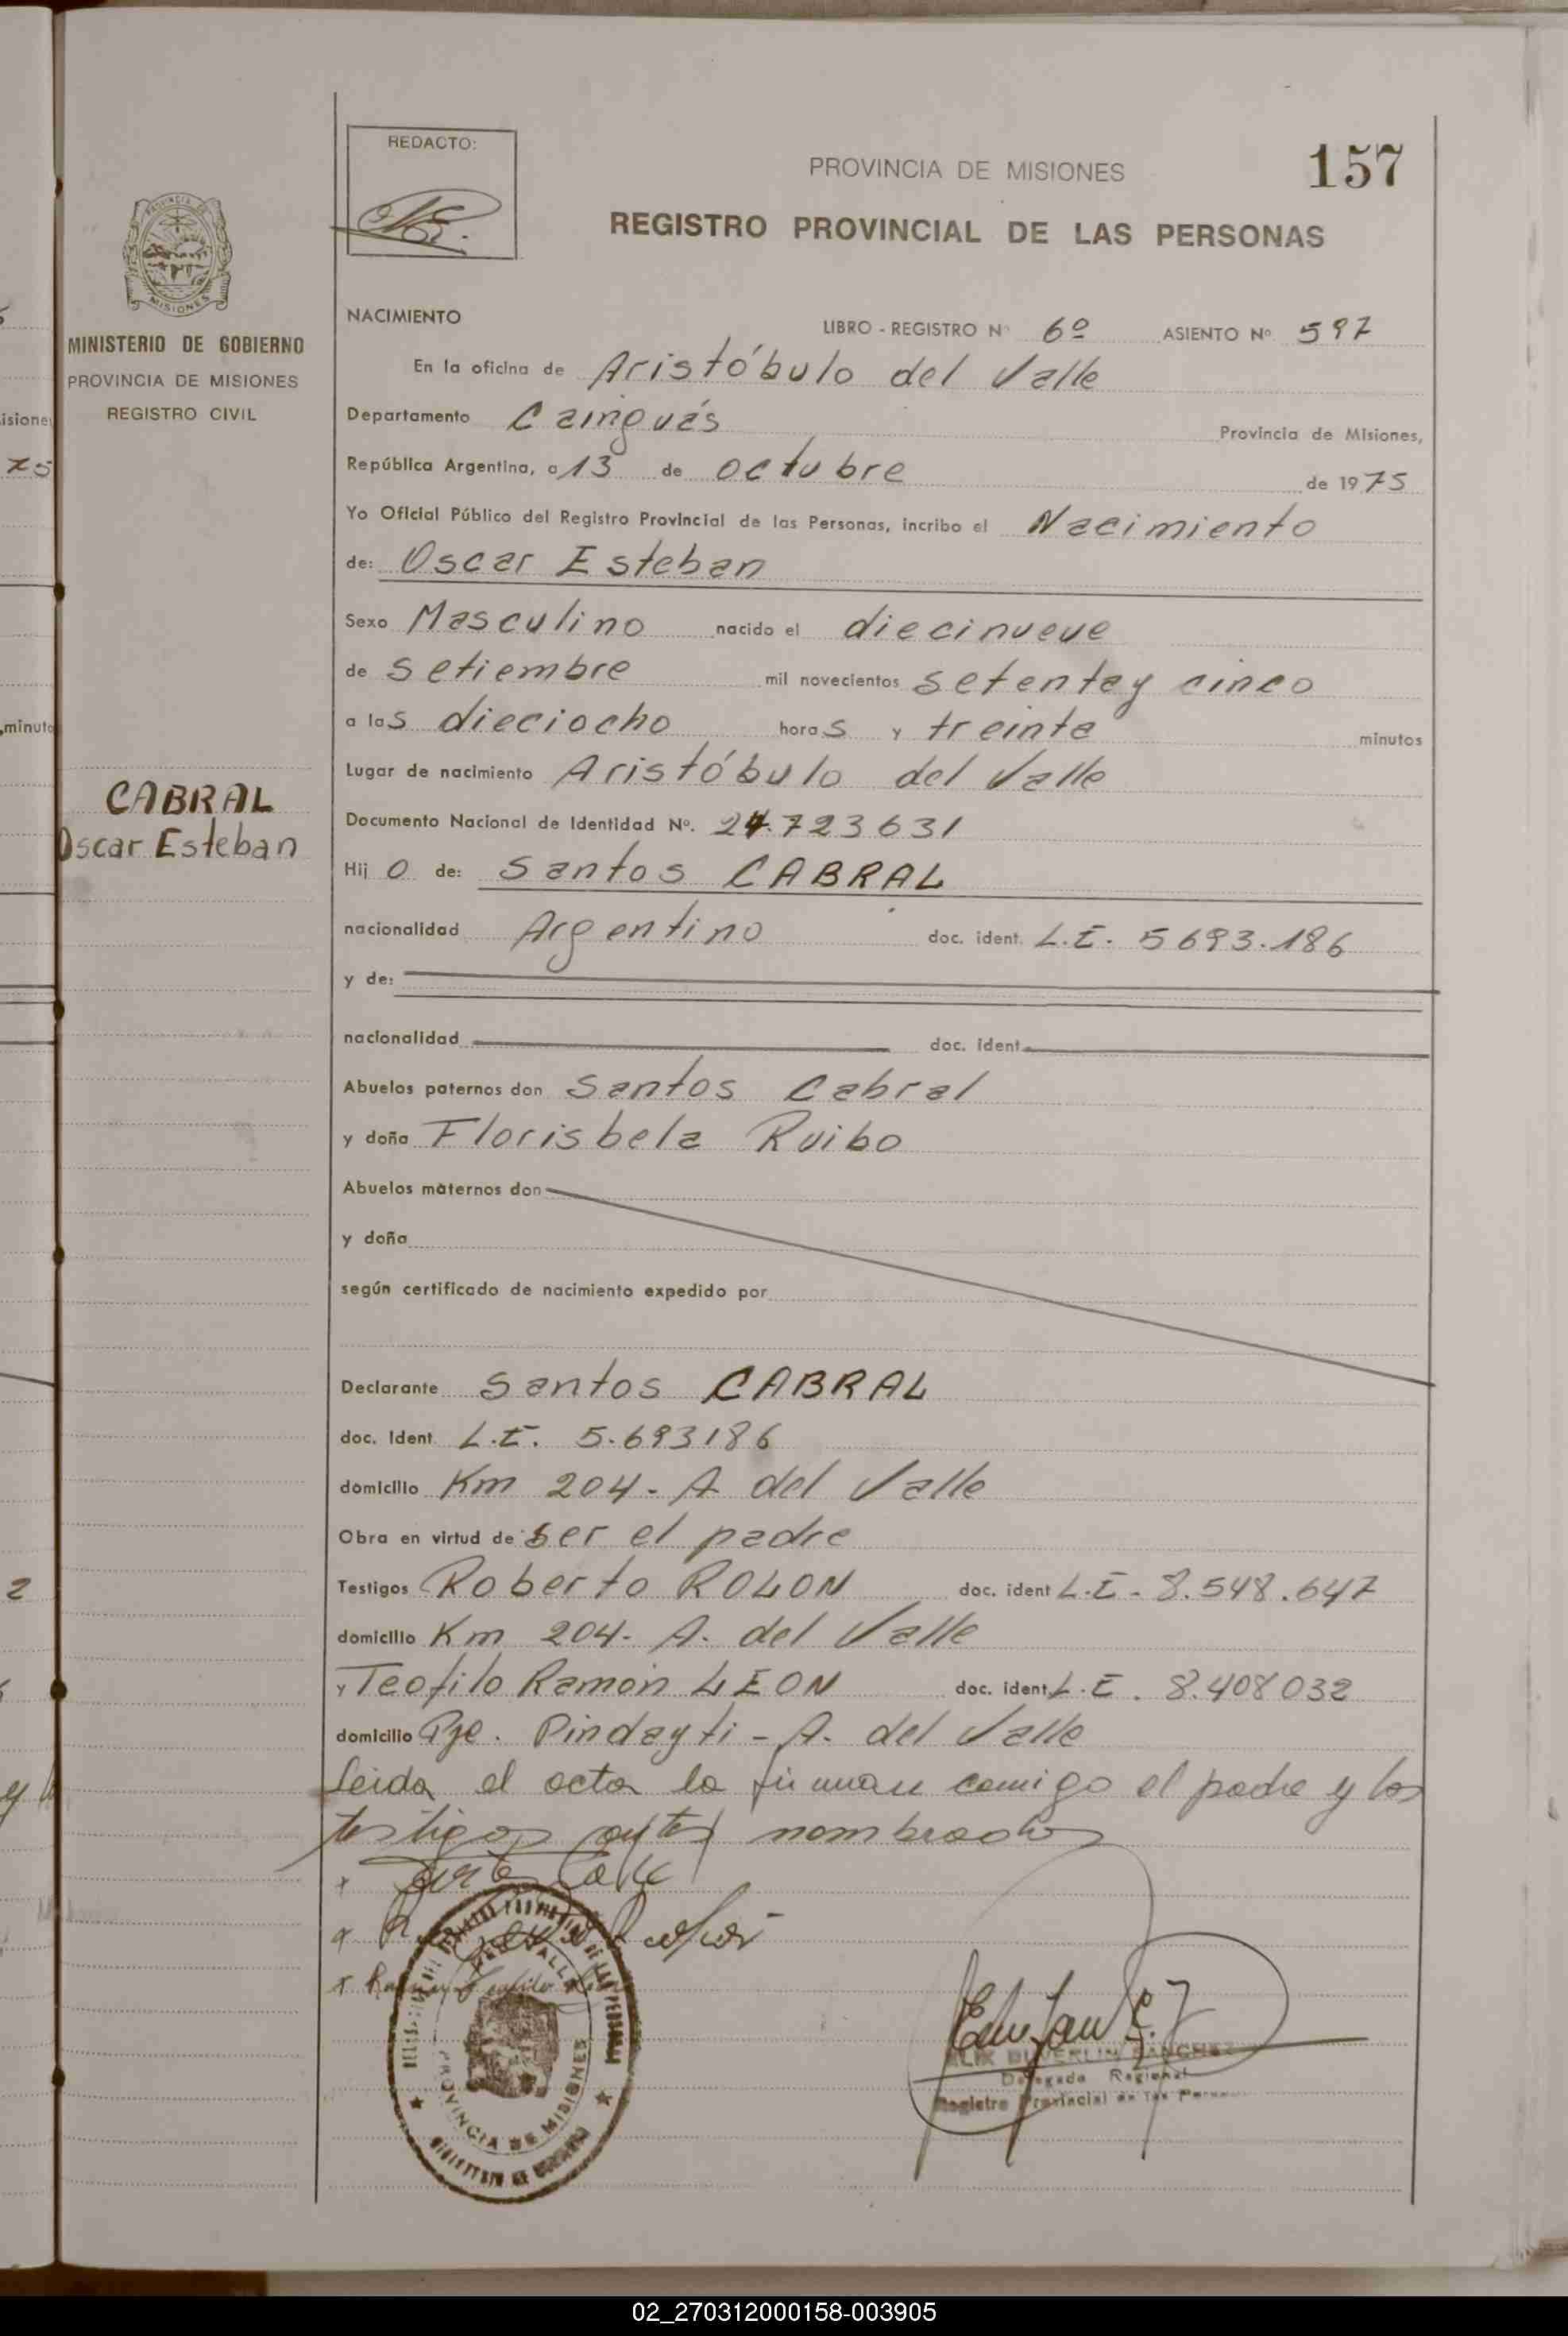 REDACTO:
157
PROVINCIA DE MISIONES
REGISTRO PROVINCIAL DE LAS PERSONAS
MISIONES
MINISTERIO DE GOBIERNO
PROVINCIA DE MISIONES
REGISTRO CIVIL
NACIMIENTO
LIBRO - REGISTRO Nº 6º ASIENTO Nº 597
En la oficina de Aristóbulo del Valle
Departamento Cainguás Provincia de Misiones,
República Argentina, a 13 de octubre de 1975
Yo Oficial Público del Registro Provincial de las Personas, incribo el Nacimiento
de: Oscar Esteban
Sexo Masculino nacido el diecinueve
de setiembre mil novecientos setenta y cinco
a las dieciocho horas y treinta minutos
Lugar de nacimiento Aristóbulo del Valle
CABRAL
Oscar Esteban
Documento Nacional de Identidad Nº. 24.723631
Hijo de: Santos CABRAL
nacionalidad Argentino doc. ident. L.E. 5693.186
y de:
nacionalidad doc. ident.
Abuelos paternos don Santos Cabral
y doña Florisbela Ruibo
Abuelos maternos don
y doña
según certificado de nacimiento expedido por
Declarante Santos CABRAL
doc. Ident. L.E. 5.693186
domicilio Km 204 - A del Valle
Obra en virtud de ser el padre
Testigos Roberto ROLON doc. ident L.E - 8.548.647
domicilio Km 204 - A. del Valle
y Teofilo Ramón LEON doc. ident. L.E. 8.408032
domicilio Pje. Pindayti - A. del Valle
Leida el acta la firman comigo el padre y los
testigos antes nombrados
PROVINCIA DE MISIONES
MINISTERIO DE GOBIERNO
SANCHEZ
Delegada Regional
Registro Provincial de las
02_270312000158-003905